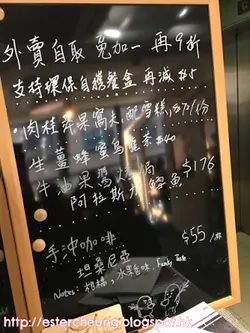 外賣自取 免加一 再9折
支持環保自攜餐盒 再減$5
·肉桂苹果窩夫配雪糕 $79/份
生薑蜂蜜烏龍茶 $40
牛油果漿焗
阿拉斯加鱈魚 $176
手沖咖啡
坦桑尼亞 $55/杯
Notes: 柑橘,水果香味,
http://estercheung.blogspot.hk